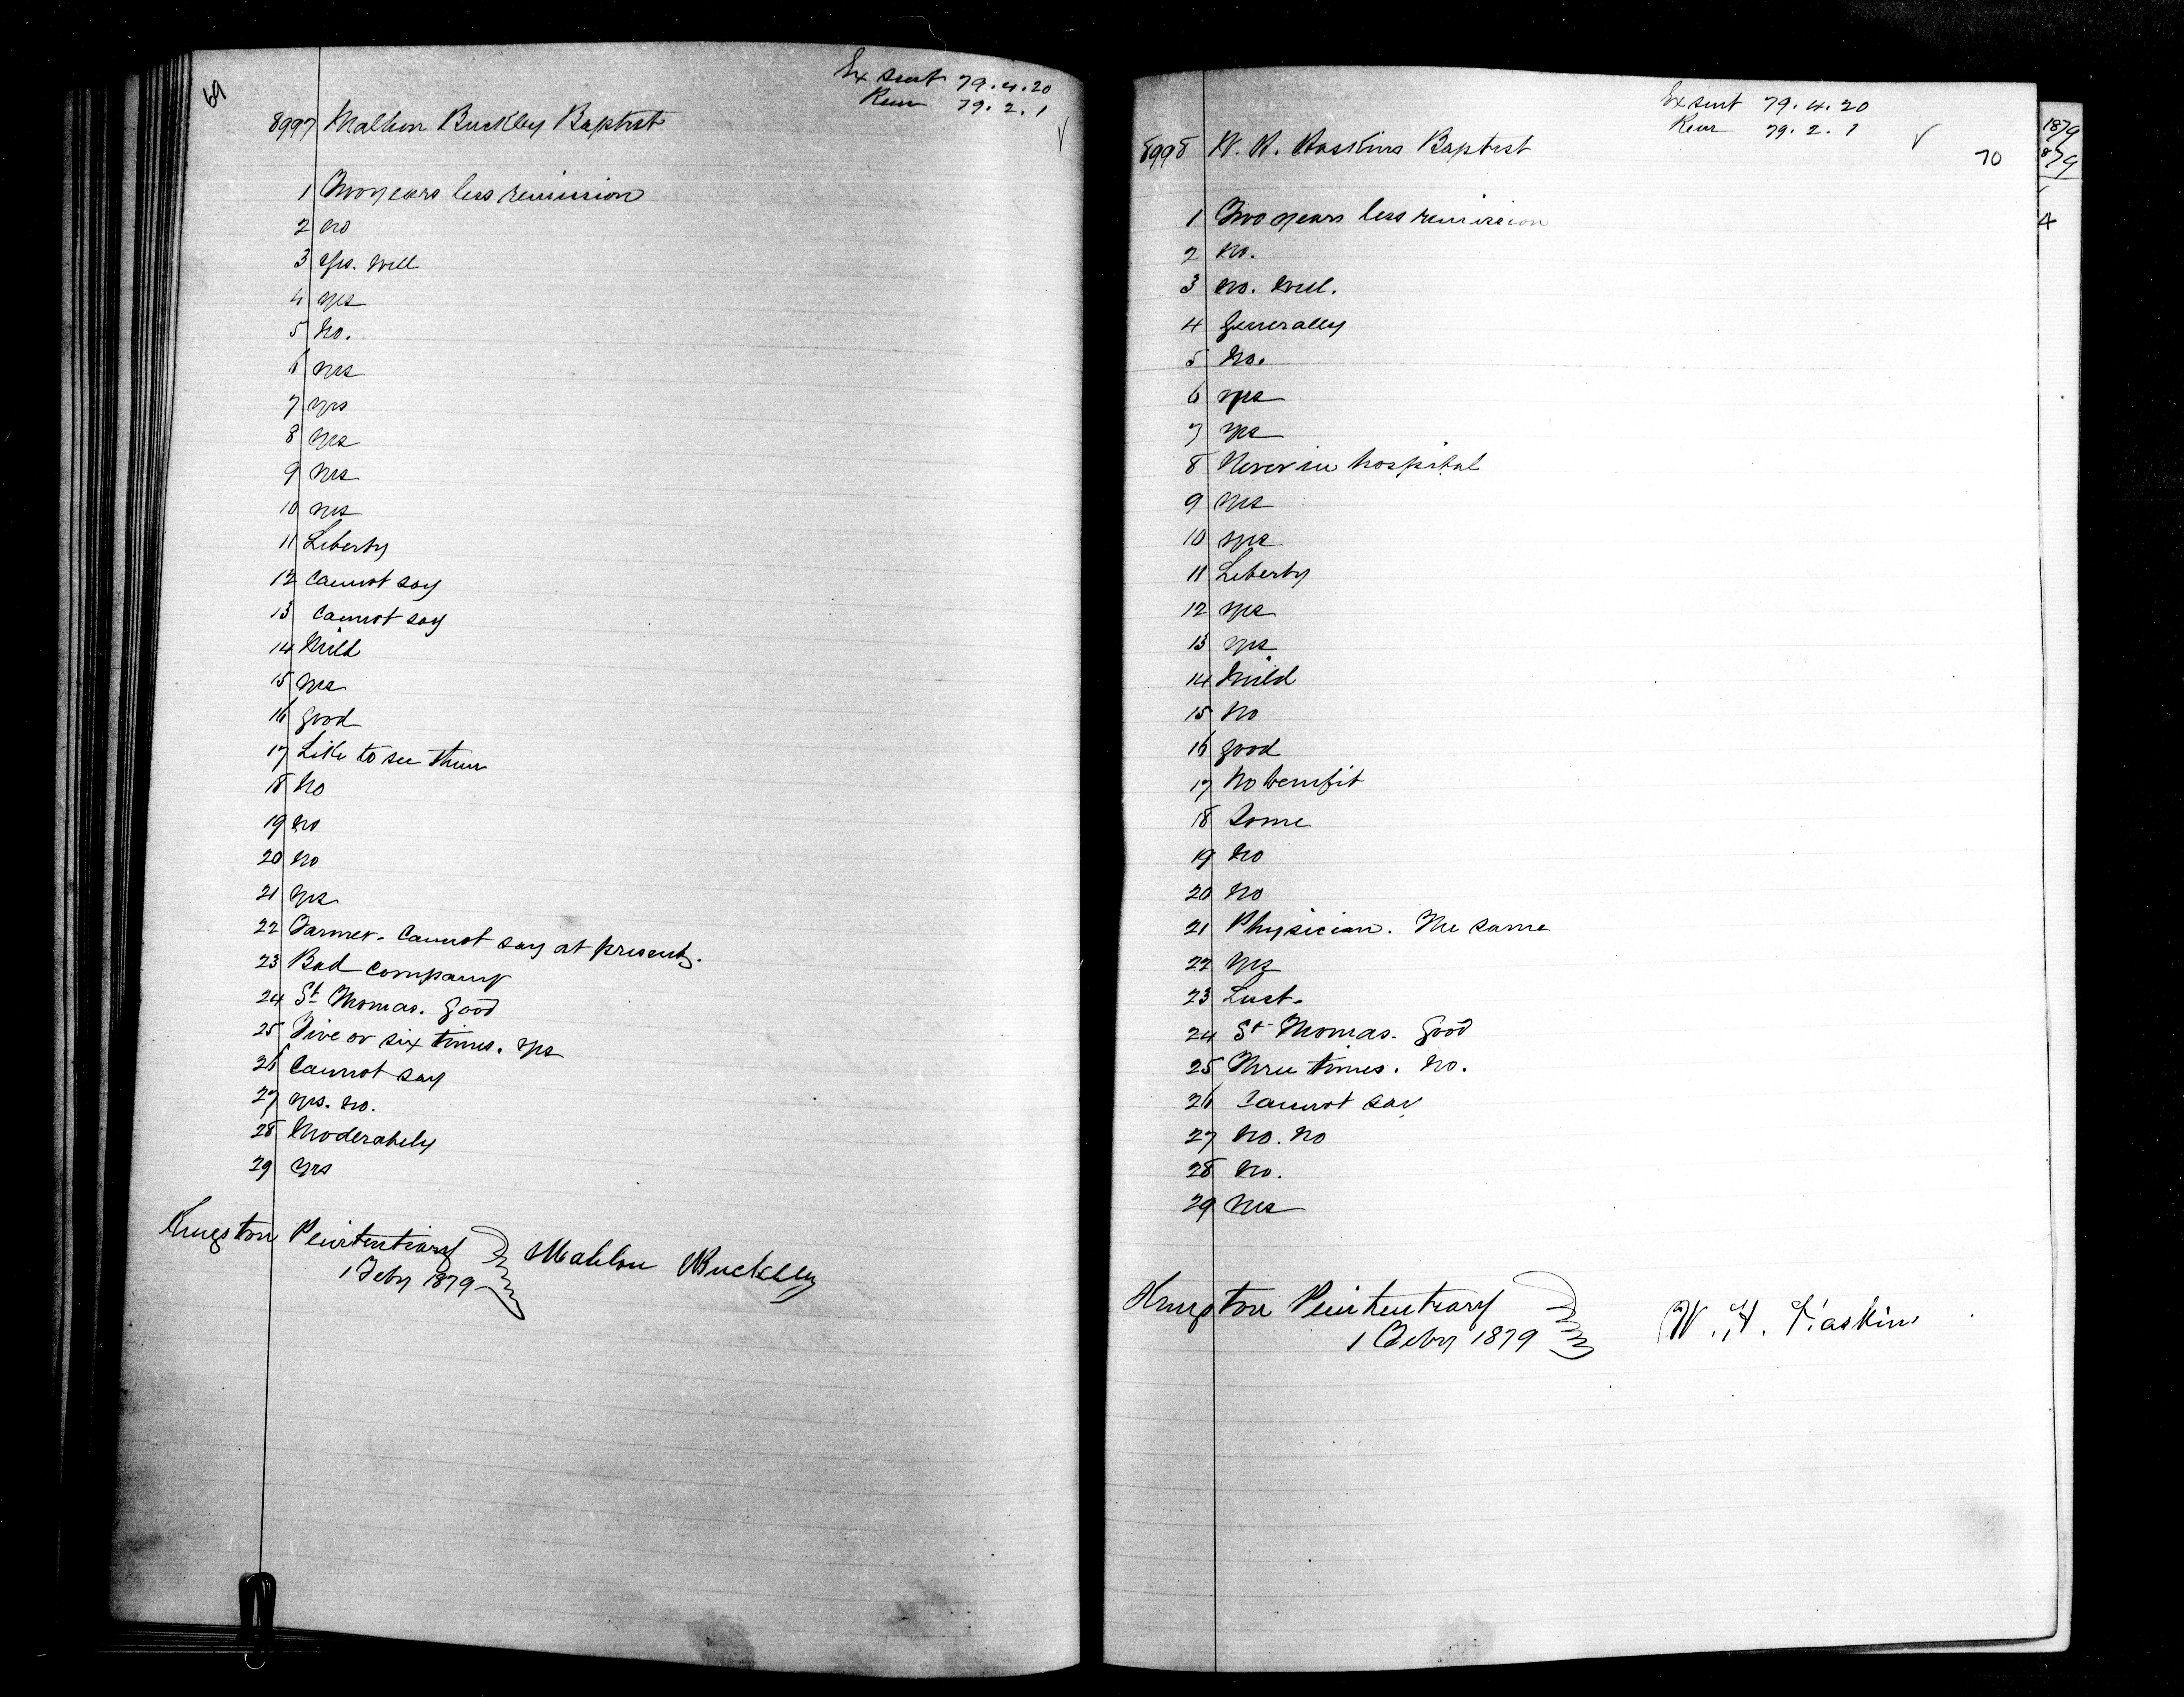 69
Ex sent 79.4.20
Rem 79.2.1
8997 Malhon Buckley Baptist
1 Two years less remission
2 no
3 yes. well
4 yes
5 No.
6 yes
7 yes
8 yes
9 yes
10 yes
11 Liberty
12 Cannot say
13 Cannot say
14 Mild
15 yes
16 good
17 Like to see them
18 No
19 no
20 no
21 yes
22 Farmer. Cannot say at present.
23 Bad Company
24 St Thomas. good
25 Five or six times. yes
26 Cannot say
27 yes. no.
28 Moderately
29 yes
Kingston Penitentiary
1 Feby 1879
Mahlon Buckley
Ex sent 79.4.20
Rem 79.2.1
8998 W. H. Haskins Baptist
70
1 Two years less remission
2 No.
3 no. well.
4 Generally
5 No.
6 yes
7 yes
8 Never in hospital
9 yes
10 yes
11 Liberty
12 yes
13 yes
14 Mild
15 No
16 good
17 No benefit
18 Some
19 No
20 No
21 Physician. The same
22 yes
23 Lust.
24 St Thomas. Good
25 Three times. No.
26 Cannot say
27 No. No
28 No.
29 yes
Kingston Penitentiary
1 Feby 1879
W. H. Haskins
1879
879
4